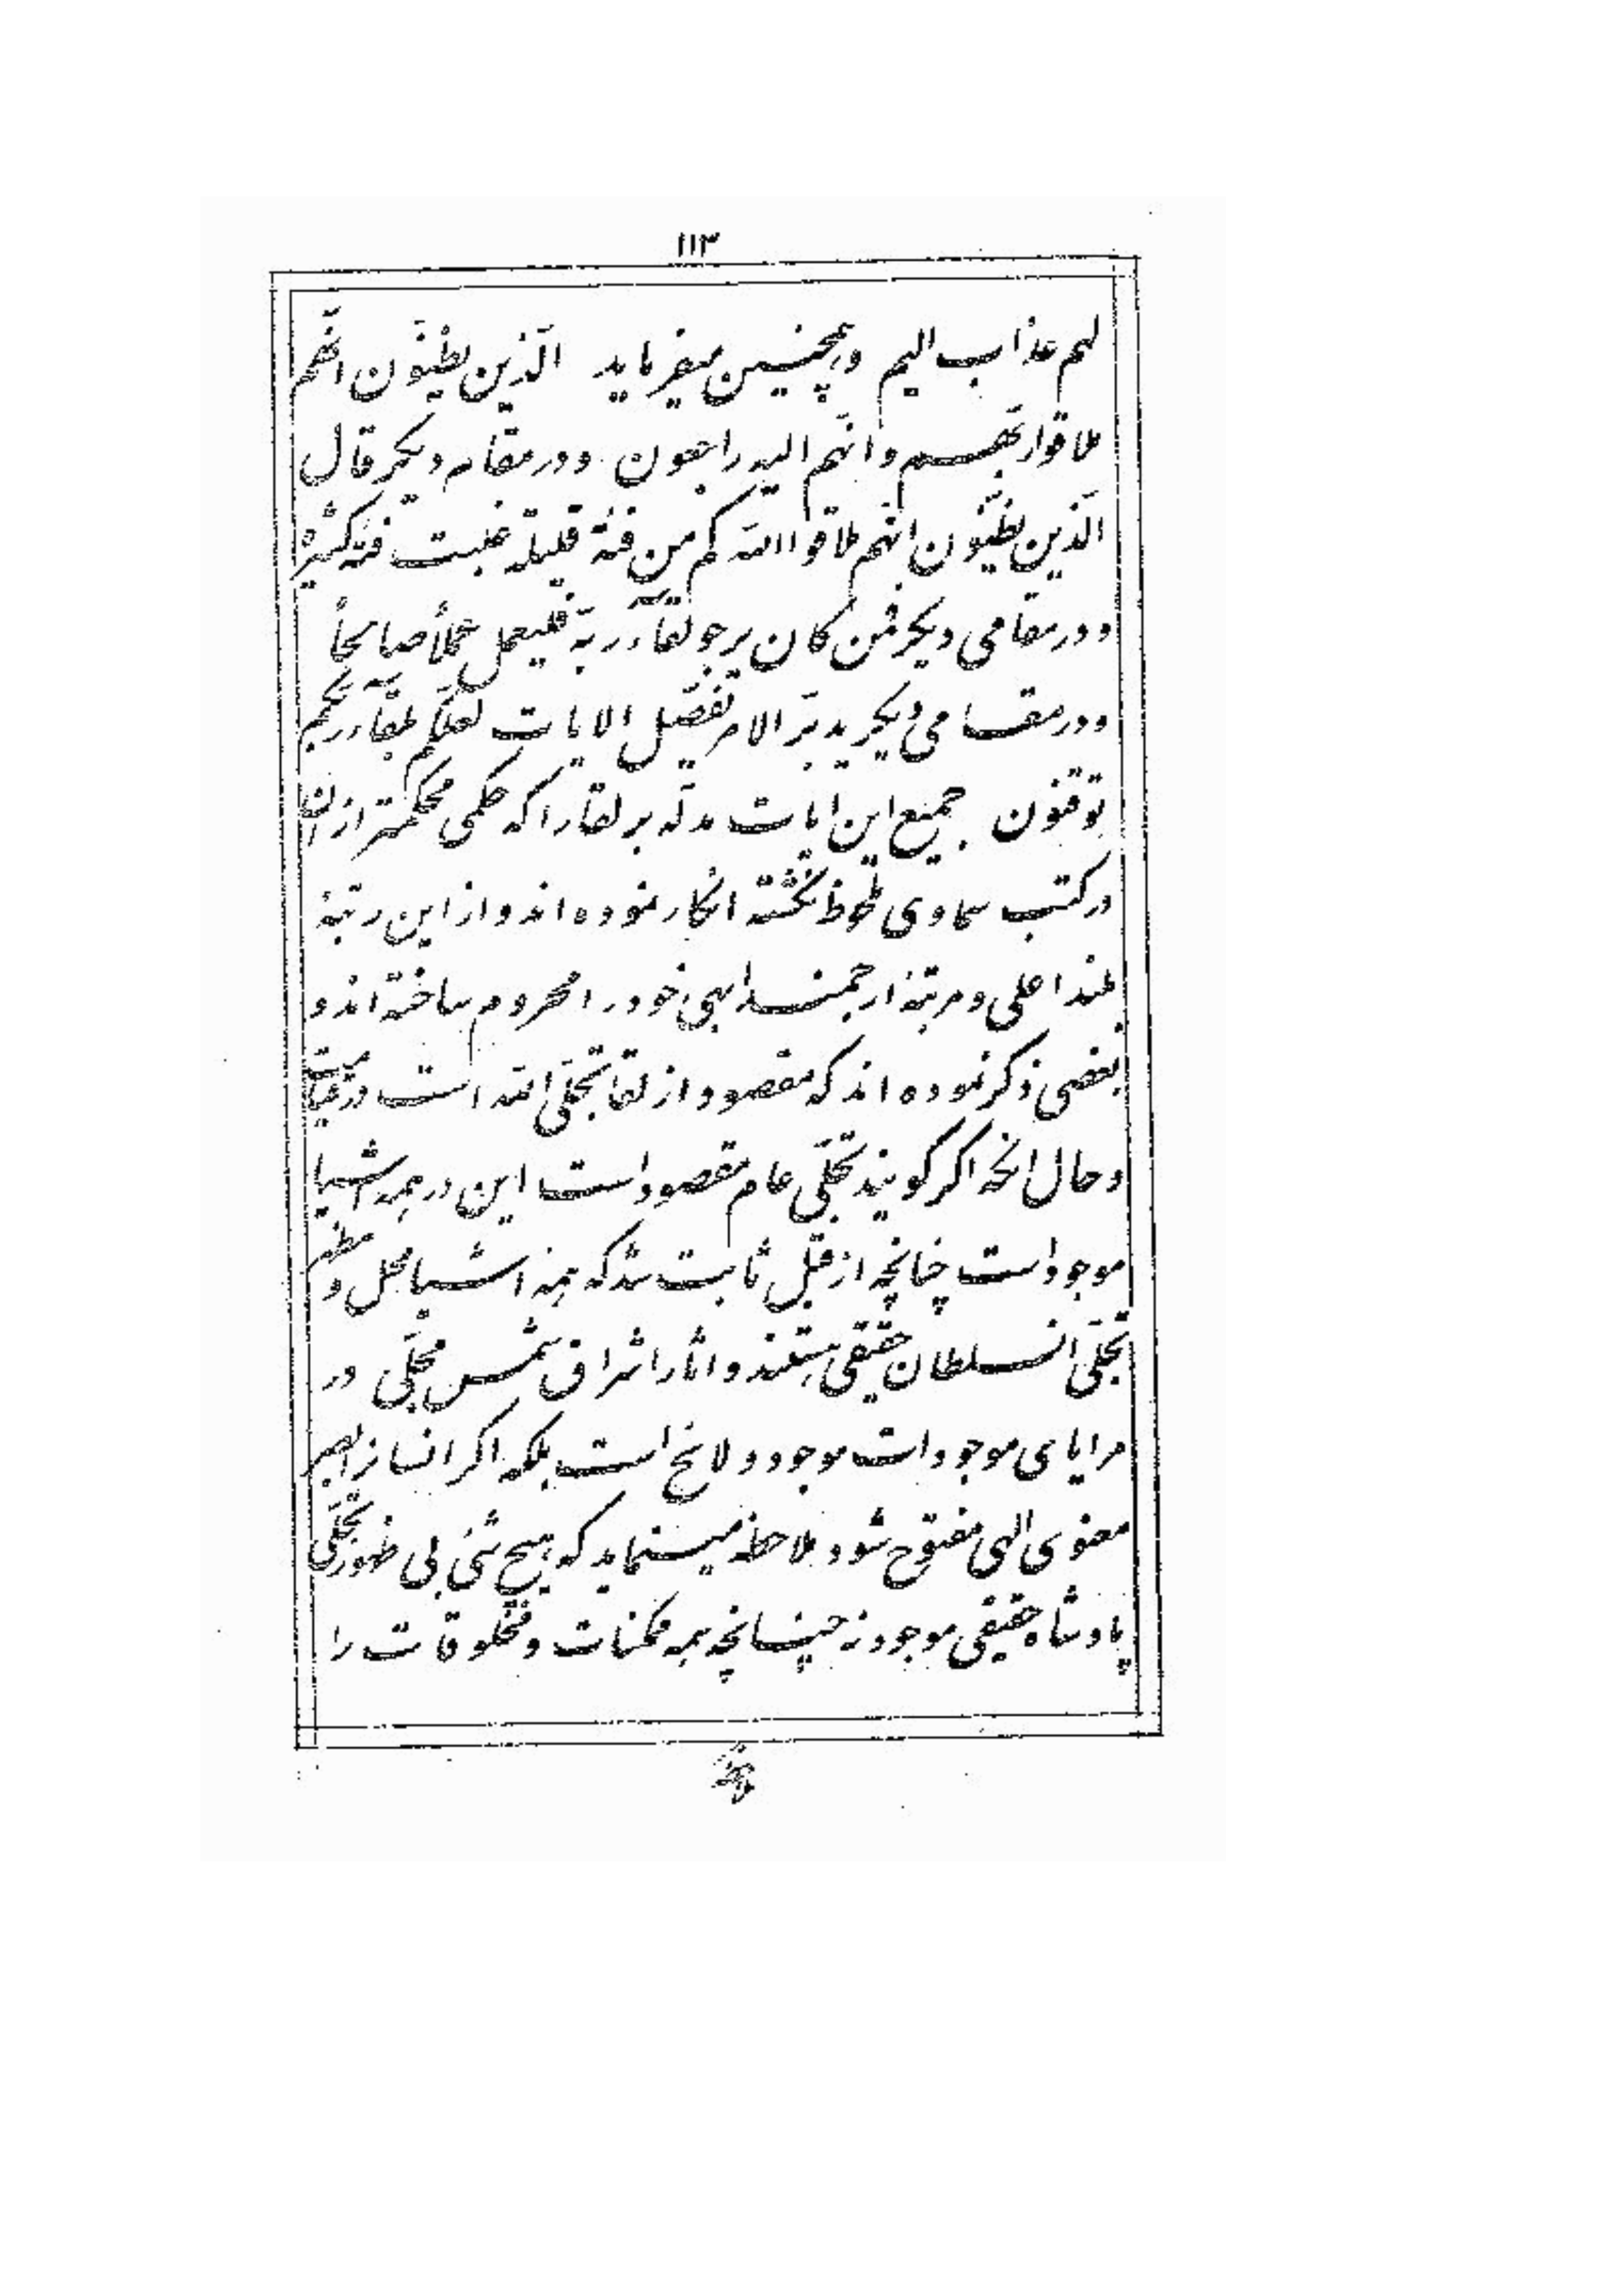 ١١٣
لهم عذاب اليم و همچنين ميفرمايد الّذين يظنّون انّهم
ملاقوا ربّهم و انّهم اليه راجعون و در مقام ديگر قال
الّذين يظنّون انّهم ملاقوا اللّه كم من فئة قليلة غلبت فئة كثيرة
و در مقامی ديگر فمن كان يرجو لقآء ربّه فليعمل عملاً صالحاً
و در مقامی ديگر يدبّر الامر يفصّل الايات لعلّكم بلقآء ربّكم
توقنون جميع اين ايات مدلّه بر لقا را كه حكمی محكمتر از ان
در كتب سماوی ملحوظ نگشته انكار نموده اند و از اين رتبهٴ
بلند اعلی و مرتبهٴ ارجمند ابهی خود را محروم ساخته اند و
بعضی ذكر نموده اند كه مقصود از لقا تجلّی اللّه است در قيامت
و حال انكه اگر گويند تجلّی عام مقصود است اين در همه اشيا
موجود است چنانچه از قبل ثابت شد كه همهٴ اشيا محل و مظهر
تجلّی ان سلطان حقيقی هستند و اثار اشراق شمس مجلّی در
مرايای موجودات موجود و لائح است بلكه اگر انسان را بصر
معنوی الهی مفتوح شود ملاحظه مينمايد كه هيچ شیٔ بی ظهور تجلّی
پادشاه حقيقی موجود نه چنانچه همه ممكنات و مخلوقات را